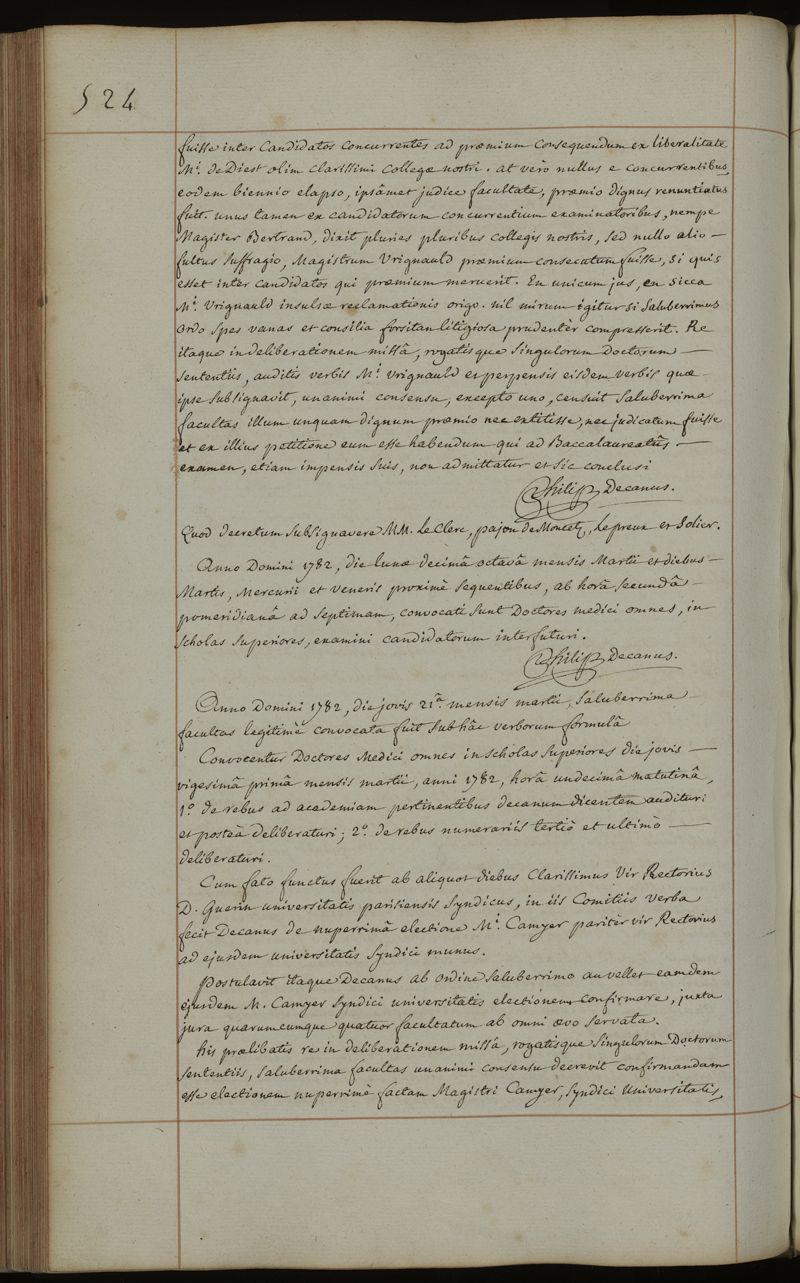 524
fuisse inter Candidatos Concurrentes ad præmium Consequendum ex liberalitate
M.i de Diest olim Clarissimi Collegæ nostri. at verò nullus e concurrentibus,
eodem biennio elapso, ipsâmet judice facultate, præmio dignus renuntiatus
fuit. unus tamen ex candidatorum concurrentium examinatoribus, nempe
Magister Bertrand, dixit pluries pluribus collegis nostris, sed nullo alio —
fultus suffragio, Magistrum Vrignauld præmium consecutum fuisse, si quis
esset inter Candidatos qui præmium meruerit. En unicum jus, en sicca
M.i Vrignauld insulsæ reclamationis origo. nil mirum igitur si Saluberrimus
Ordo spes vanas et consilia forsitan litigiosa prudentèr compresserit. Re
itaque in deliberationem missâ, rogatisque singulorum Doctorum —
sententiis, auditis verbis M.i Vrignauld et perpensis eisdem verbis quæ
ipse subsignavit, unanimi consensu, excepto uno, censuit Saluberrima
facultas illum unquam dignum præmio nec extitisse, nec judicatum fuisse
et ex illius petitione eum esse habendum qui ad Baccalaureatûs —
examen, etiam impensis suis, non admittatur et sic conclusi
Philip Decanus.
Quod decretum subsignavere MM. Le Clerc, pajon de Moncetz, Lepreux et Solier.
Anno Domini 1782, die lunæ decimâ octavâ mensis Martii et diebus —
Martis, Mercurii et veneris proximè sequentibus, ab horâ secundâ —
pomeridianâ ad septimam, convocati sunt Doctores medici omnes, in
scholas superiores, examini candidatorum interfuturi.
Philip Decanus.
Anno Domini 1782, die jovis 21.a mensis martii, Saluberrima
facultas legitimè convocata fuit sub hâc verborum formulâ
Convocentur Doctores Medici omnes in scholas superiores die jovis —
vigesimâ primâ mensis martii, anni 1782, horâ undecimâ matutinâ,
1.o de rebus ad academiam pertinentibus decanum dicentem audituri
et posteà deliberaturi; 2.o de rebus numerariis tertiò et ultimò —
deliberaturi.
Cum fato functus fuerit ab aliquot diebus Clarissimus Vir Rectorius
D. Guerin universitatis parisiensis Syndicus, in iis Comitiis verba
fecit Decanus de nuperrimâ electione M.i Camyer paritèr vir Rectorius
ad ejusdem universitatis Syndici munus.
Postulavit itaque Decanus ab ordine Saluberrimo an vellet eamdem
ejusdem M. Camyer Syndici universitatis electionem confirmare, juxta
jura quarumcumque quatuor facultatum ab omni ævo servata.
his prælibatis re in deliberationem missâ, rogatisque singulorum Doctorum
sententiis, saluberrima facultas unanimi consensu decrevit confirmandam
esse electionem nuperrimè factam Magistri Camyer, Syndici Universitatis,